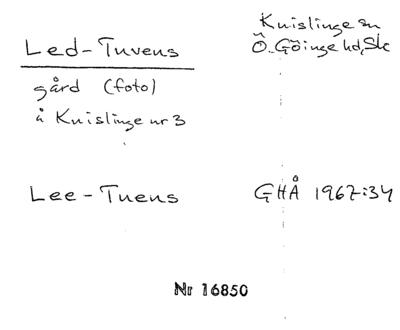 Led-Tuvens
gård (foto)
å Knislinge nr 3
Knislinge sn
Ö. Göinge hd, Sk
Lee-Tuens
GHÅ 1967:34
Nr 16850